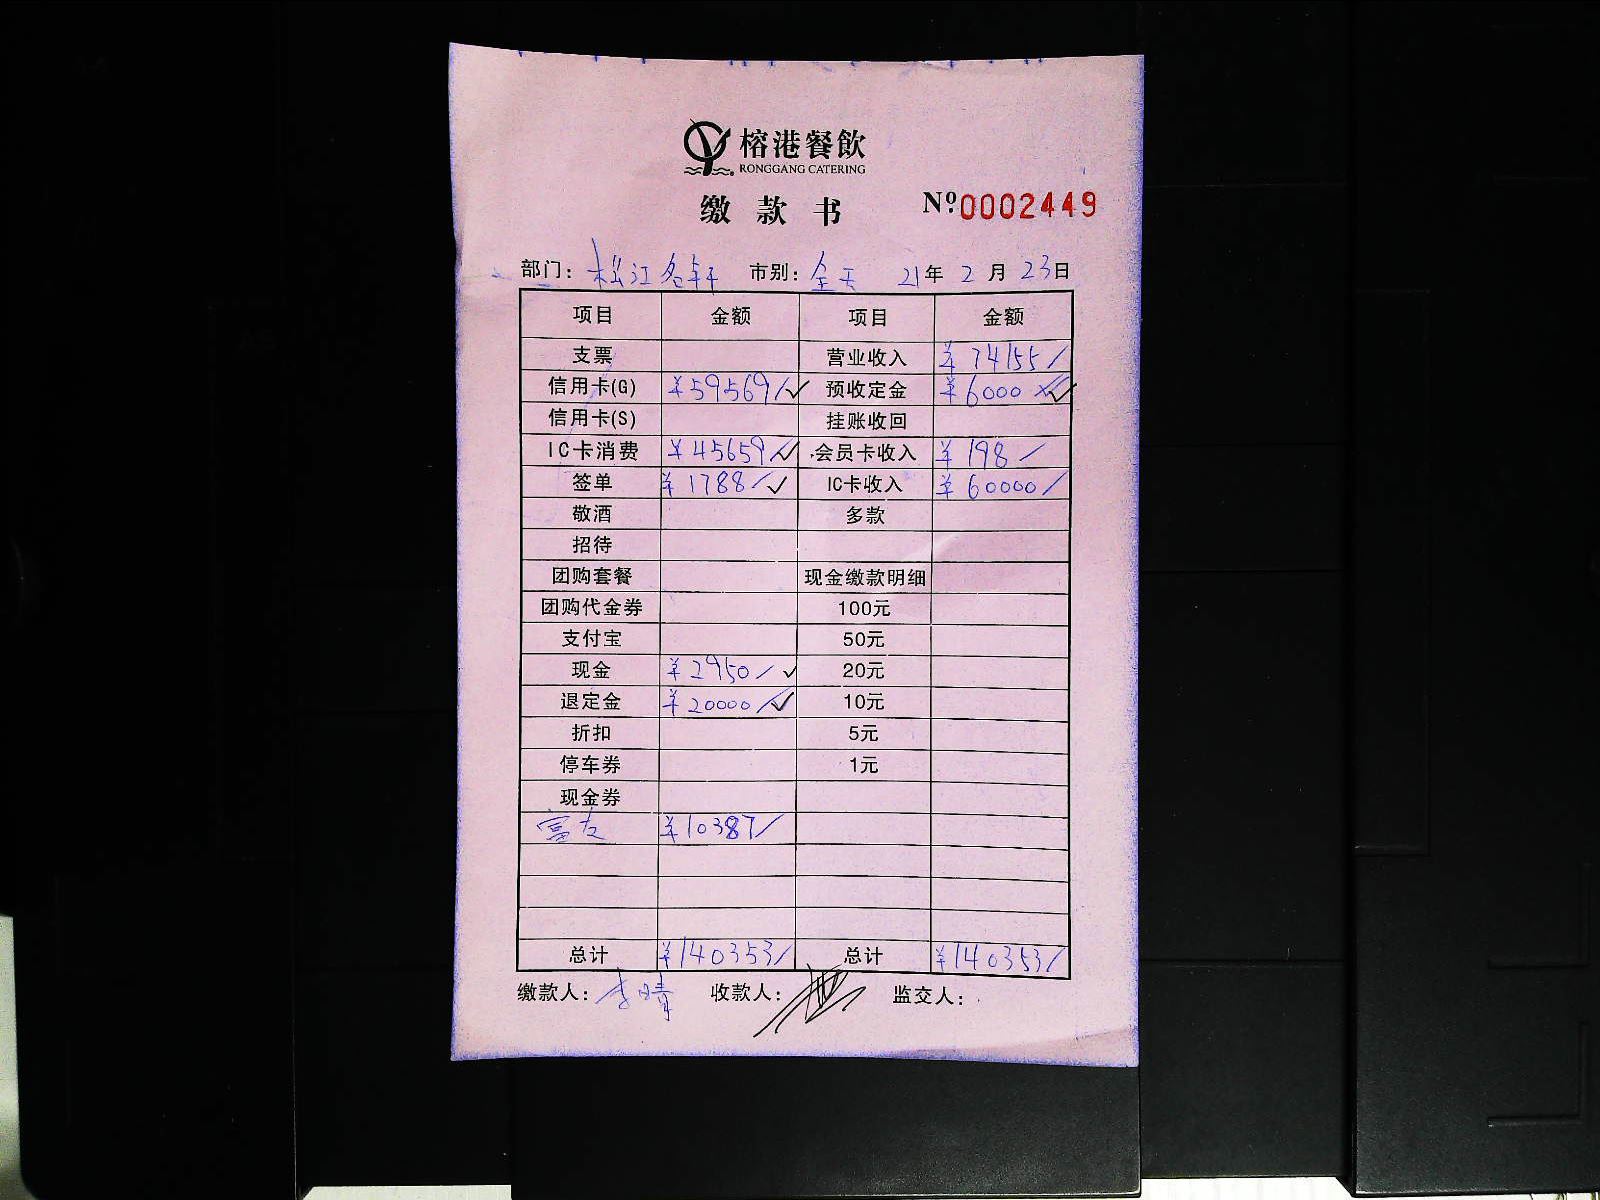 榕港餐飲
RONGGANG CATERING
缴款书 Nº:0002449
部门: 松江名轩 市别: 全天 21年 2月 23日
项目 金额 项目 金额
支票 营业收入 ¥74155/
信用卡(G) ¥59569/ ✓ 预收定金 ¥6000 ✓
信用卡(S) 挂账收回
IC卡消费 ¥45659/ ✓ 会员卡收入 ¥198/
签单 ¥1788/ ✓ IC卡收入 ¥60000/
敬酒 多款
招待
团购套餐 现金缴款明细
团购代金券 100元
支付宝 50元
现金 ¥2950/ ✓ 20元
退定金 ¥20000/ ✓ 10元
折扣 5元
停车券 1元
现金券
富友 ¥10387/
总计 ¥140353/ 总计 ¥140353/
缴款人: 李晴 收款人: 监交人: